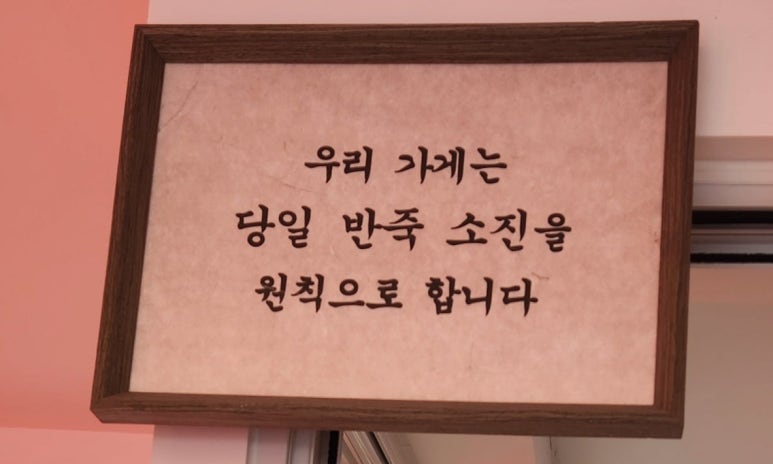 우리 가게는
당일 반죽 소진을
원칙으로 합니다